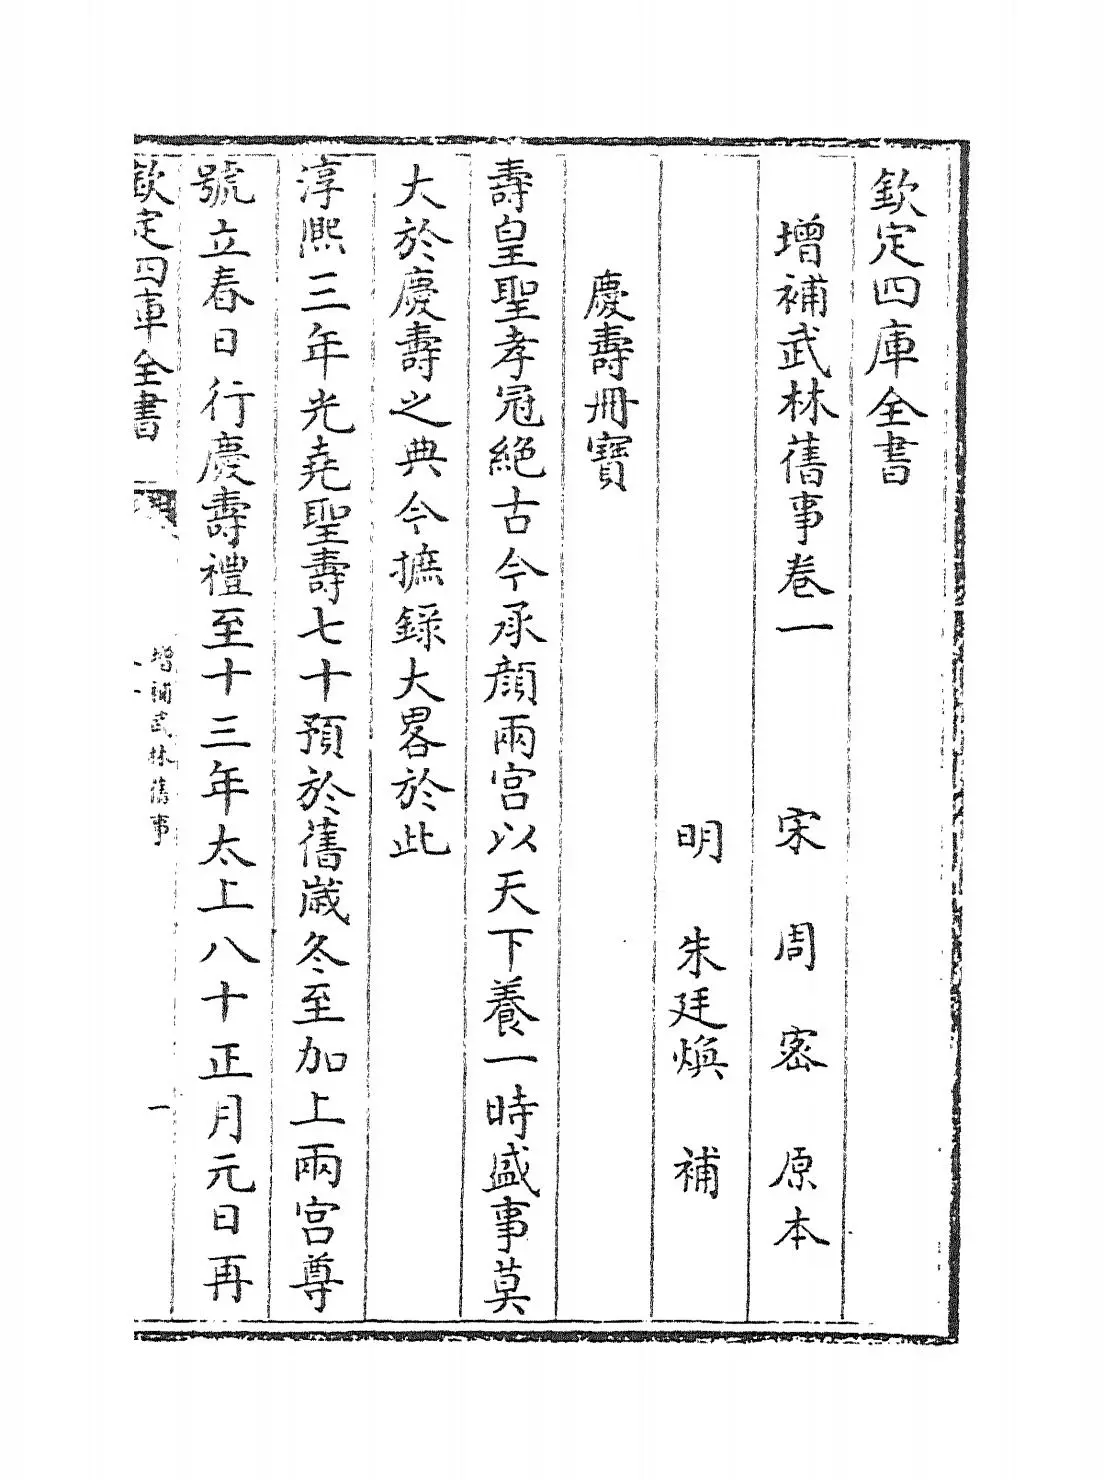 欽定四庫全書
增補武林舊事卷一　宋　周密　原本
明　朱廷煥　補
慶壽冊寶
壽皇聖孝冠絶古今承顔兩宫以天下養一時盛事莫
大於慶壽之典今摭録大畧於此
淳熈三年光堯聖壽七十預於舊歲冬至加上兩宫尊
號立春日行慶壽禮至十三年太上八十正月元日再
欽定四庫全書
增補武林舊事
一